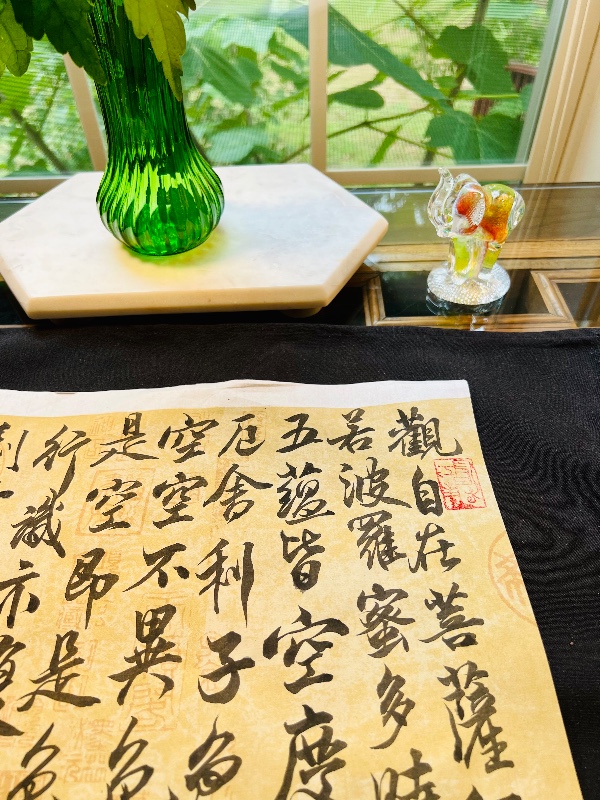 觀自在菩薩
若波羅蜜多時
五蘊皆空度
厄舍利子色
空空不異色
是空即是色
行識亦復